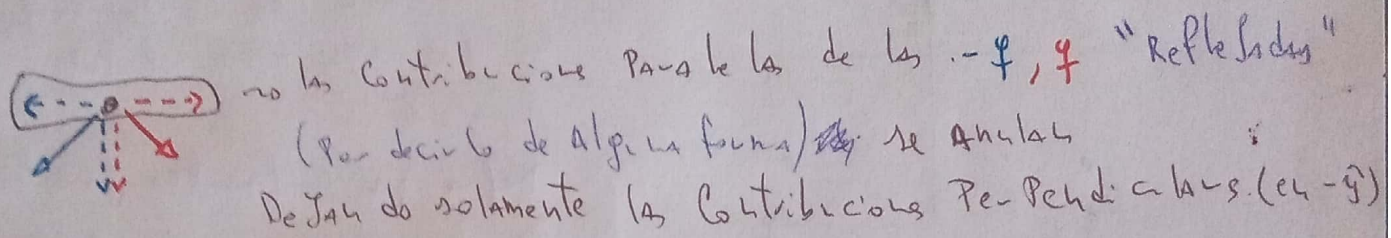 → las contribuciones Paralelas de las -φ, φ "Reflejadas"
(Por decirlo de alguna forma) se Anulan
Dejando solamente las Contribuciones Perpendiculares. (en -ŷ)